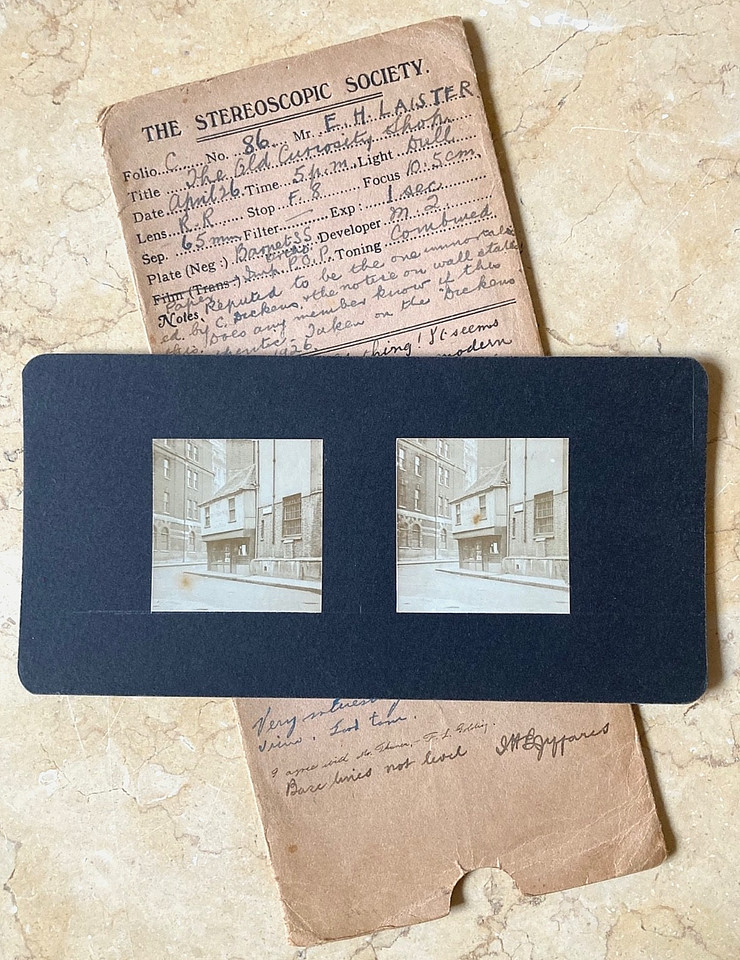 THE STEREOSCOPIC SOCIETY.
Folio C No. 86 Mr. E. H. LAISTER
Title The Old Curiosity Shop
Date April 26 Time 5 p.m. Light Dull
Lens R.R Stop F. 8 Focus 10.5cm
Sep. 65 mm Filter — Exp: 1 sec
Plate (Neg:) Barnet SS Developer M 2
Film (Trans:) P.O.P. Toning Combined
Paper
Notes. Reputed to be the one immortalis
ed by C. Dickens, & the notice on wall states
this. Does any member know if this
Taken on the "Dickens
1926
thing! It seems
modern
Very interesting
view. Good tone.
I agree with
Base lines not level